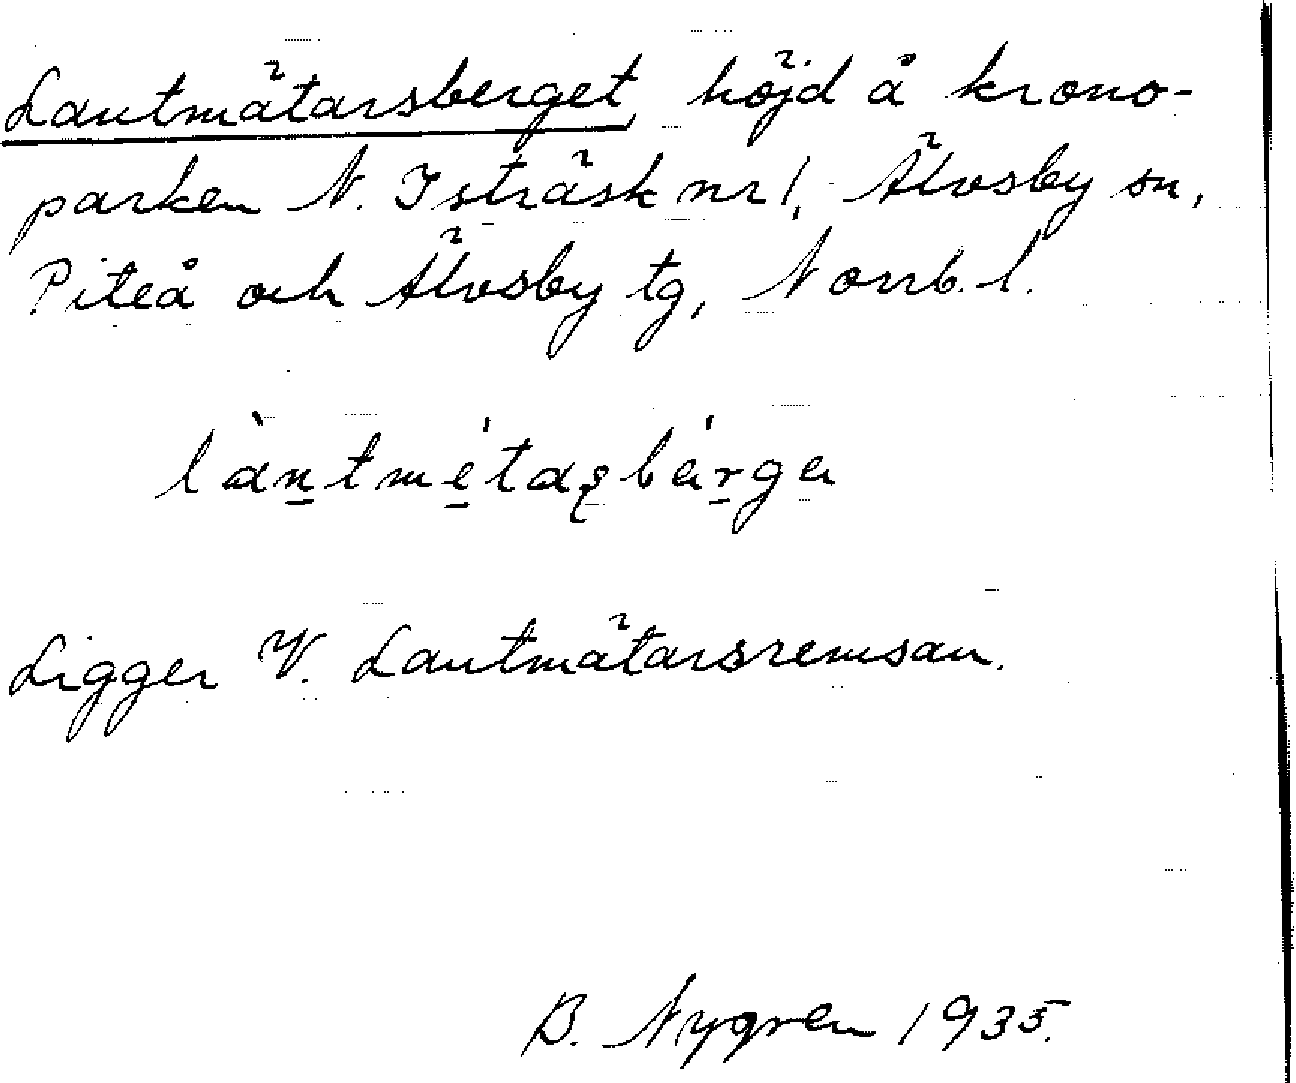 Lantmätarsberget, höjd å krono-
parken N. Isträsk nr 1, Älvsby sn,
Piteå och Älvsby tg, Norrb. l.
làntmétaʂbärga
Ligger V. Lantmätarsremsan.
B. Nygren 1935.